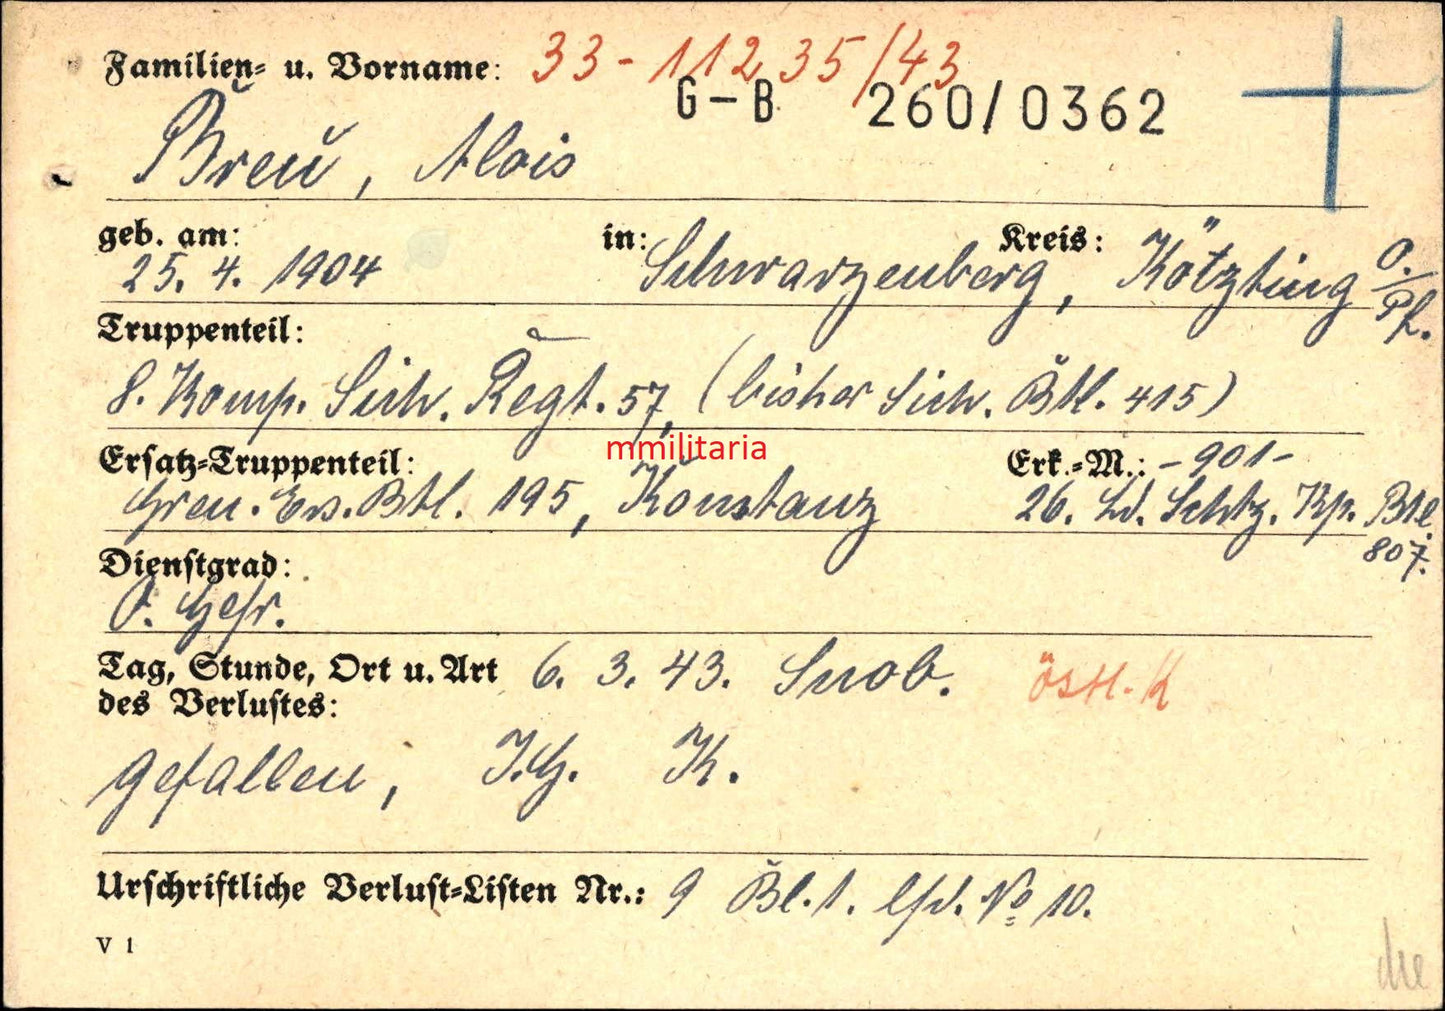 Familien- u. Vorname: 33-11235/43
G-B 260/0362
Breu, Alois
geb. am: in: Kreis:
25. 4. 1904 Schwarzenberg, Kötzting O./Pf.
Truppenteil:
8. Komp. Sich. Regt. 57, (bisher Sich. Btl. 415)
mmilitaria
Ersatz-Truppenteil: Erk.-M.: -901-
Gren. Ers. Btl. 195, Konstanz 26. Ld. Schtz. Kp. Btl. 807.
Dienstgrad:
O. Gefr.
Tag, Stunde, Ort u. Art 6. 3. 43. Snob. östl. K
des Verlustes:
gefallen, I.G. K.
Urschriftliche Verlust-Listen Nr.: 9 Bl. 1. lfd. No 10.
V 1